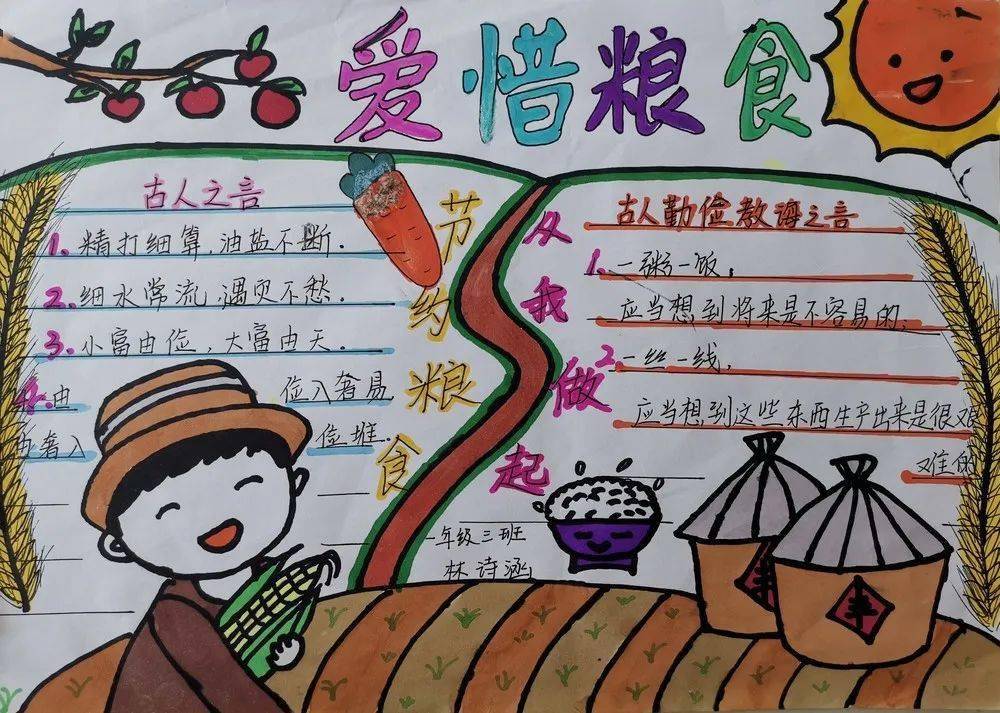 爱惜粮食
古人之言
1. 精打细算,油盐不断.
2. 细水常流,遇灾不愁.
3. 小富由俭,大富由天.
4. 由俭入奢易,
由奢入俭堆.
节约粮食
从我做起
古人勤俭教诲之言
1. 一粥一饭,
应当想到将来是不容易的;
2. 一丝一线,
应当想到这些东西生产出来是很艰
难的
一年级三班
林诗涵
丰